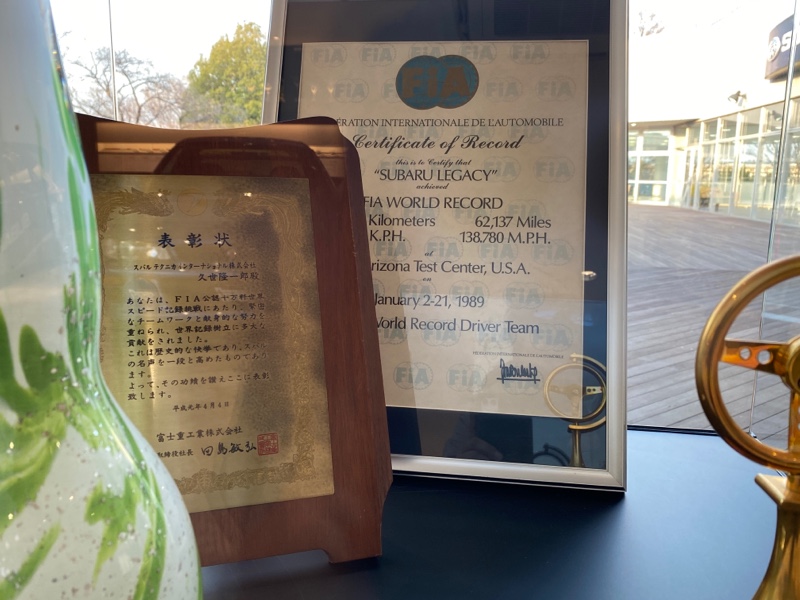 表彰状
スバルテクニカインターナショナル株式会社
久世隆一郎殿
あなたは、FIA公認十万粁世界
スピード記録挑戦にあたり、堅密
なチームワークと献身的な努力を
重ねられ、世界記録樹立に多大な
貢献をされました。
これは歴史的な快挙であり、スバル
の名声を一段と高めたものであり
ます。
よって、その功績を讃えここに表彰
致します。
平成元年4月4日
富士重工業株式会社
取締役社長 田島敏弘
FIA
FÉDÉRATION INTERNATIONALE DE L'AUTOMOBILE
Certificate of Record
this is to Certify that
"SUBARU LEGACY"
achieved
FIA WORLD RECORD
Kilometers 62,137 Miles
K.P.H. 138.780 M.P.H.
at
Arizona Test Center, U.S.A.
on
January 2-21, 1989
World Record Driver Team
FEDERATION INTERNATIONALE DE L'AUTOMOBILE